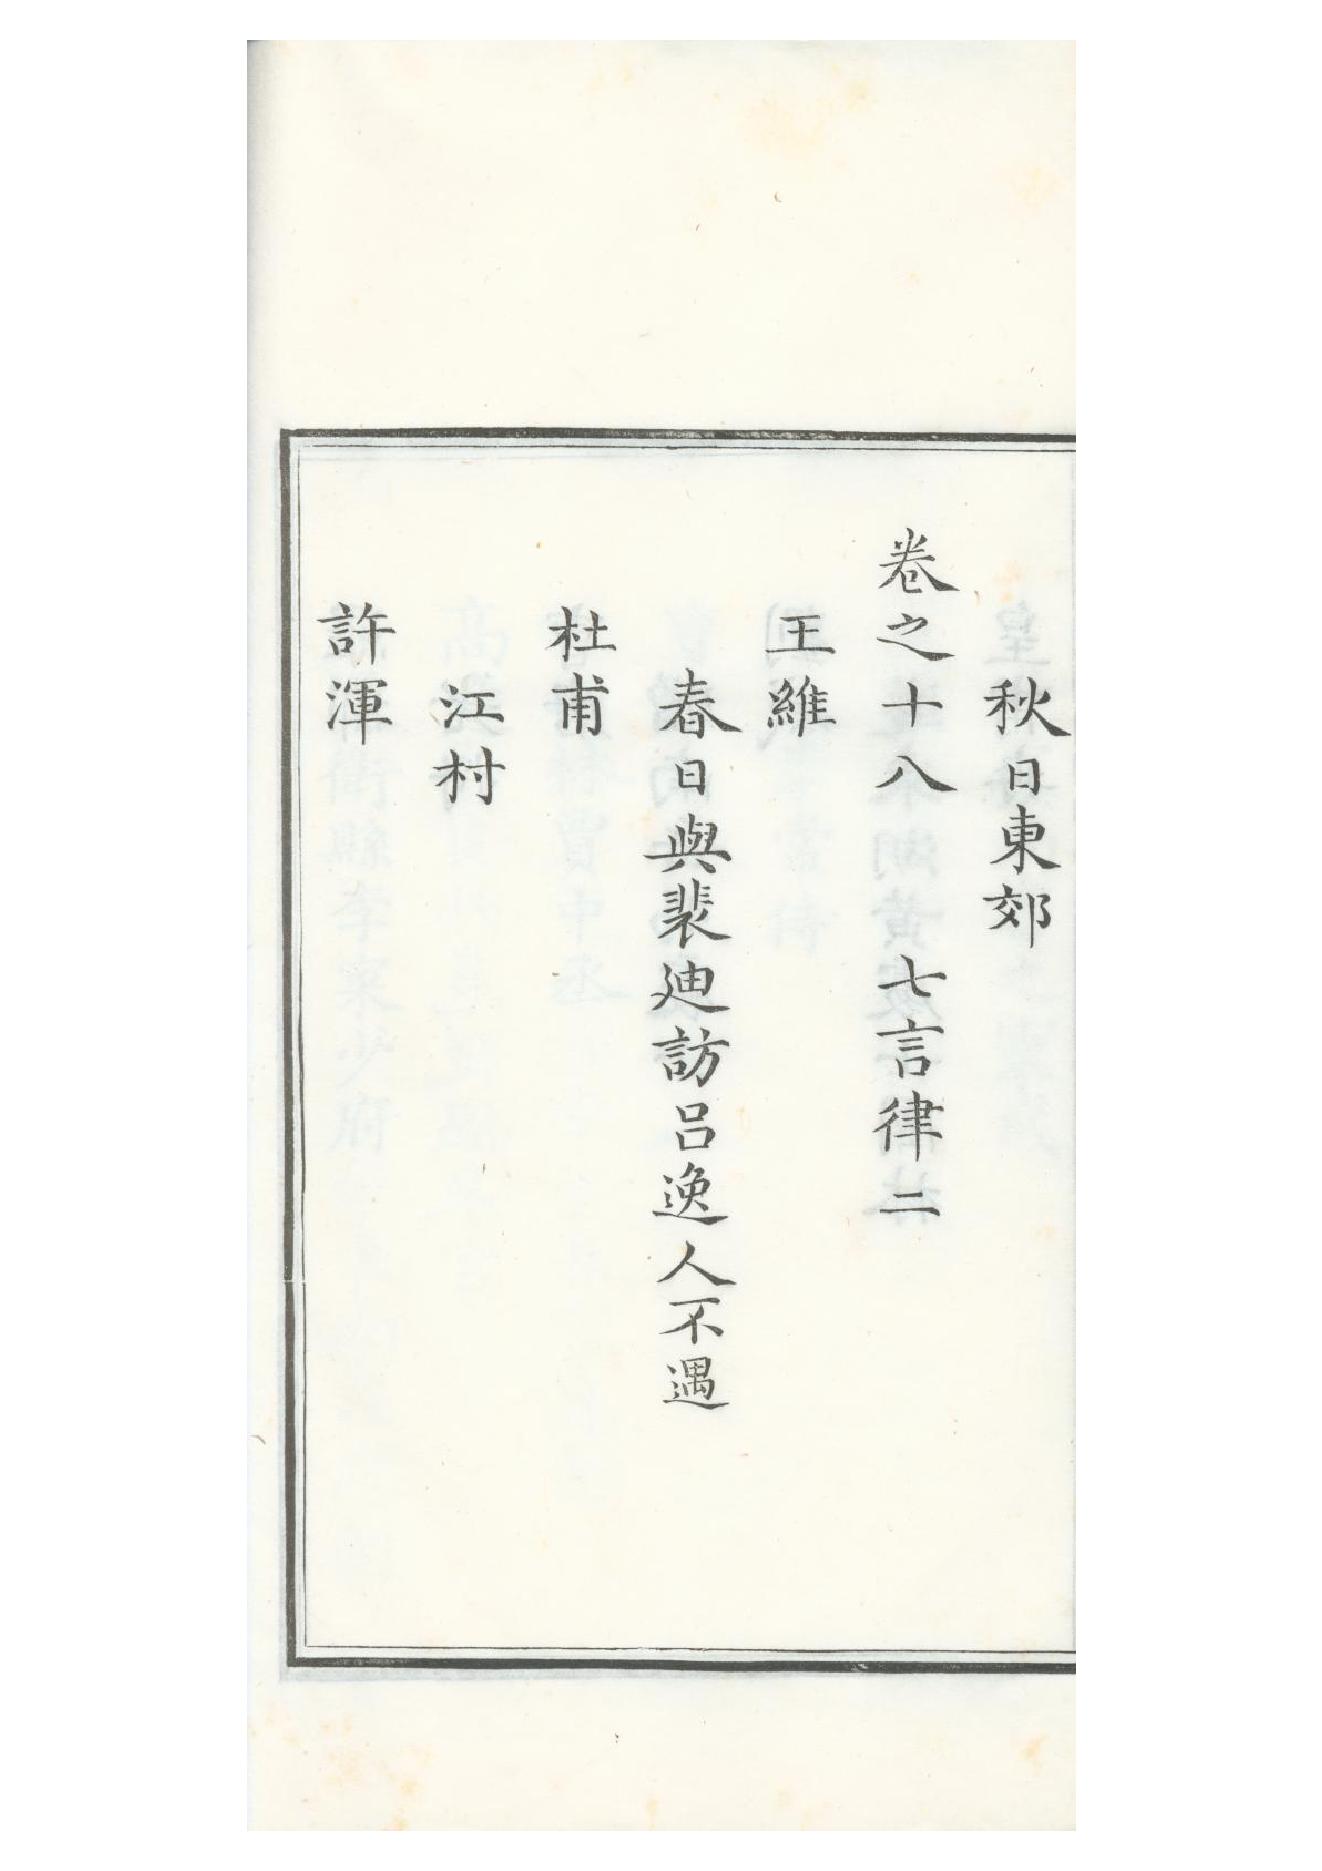 秋日東郊
卷之十八　七言律二
王維
春日與裴迪訪呂逸人不遇
杜甫
江村
許渾